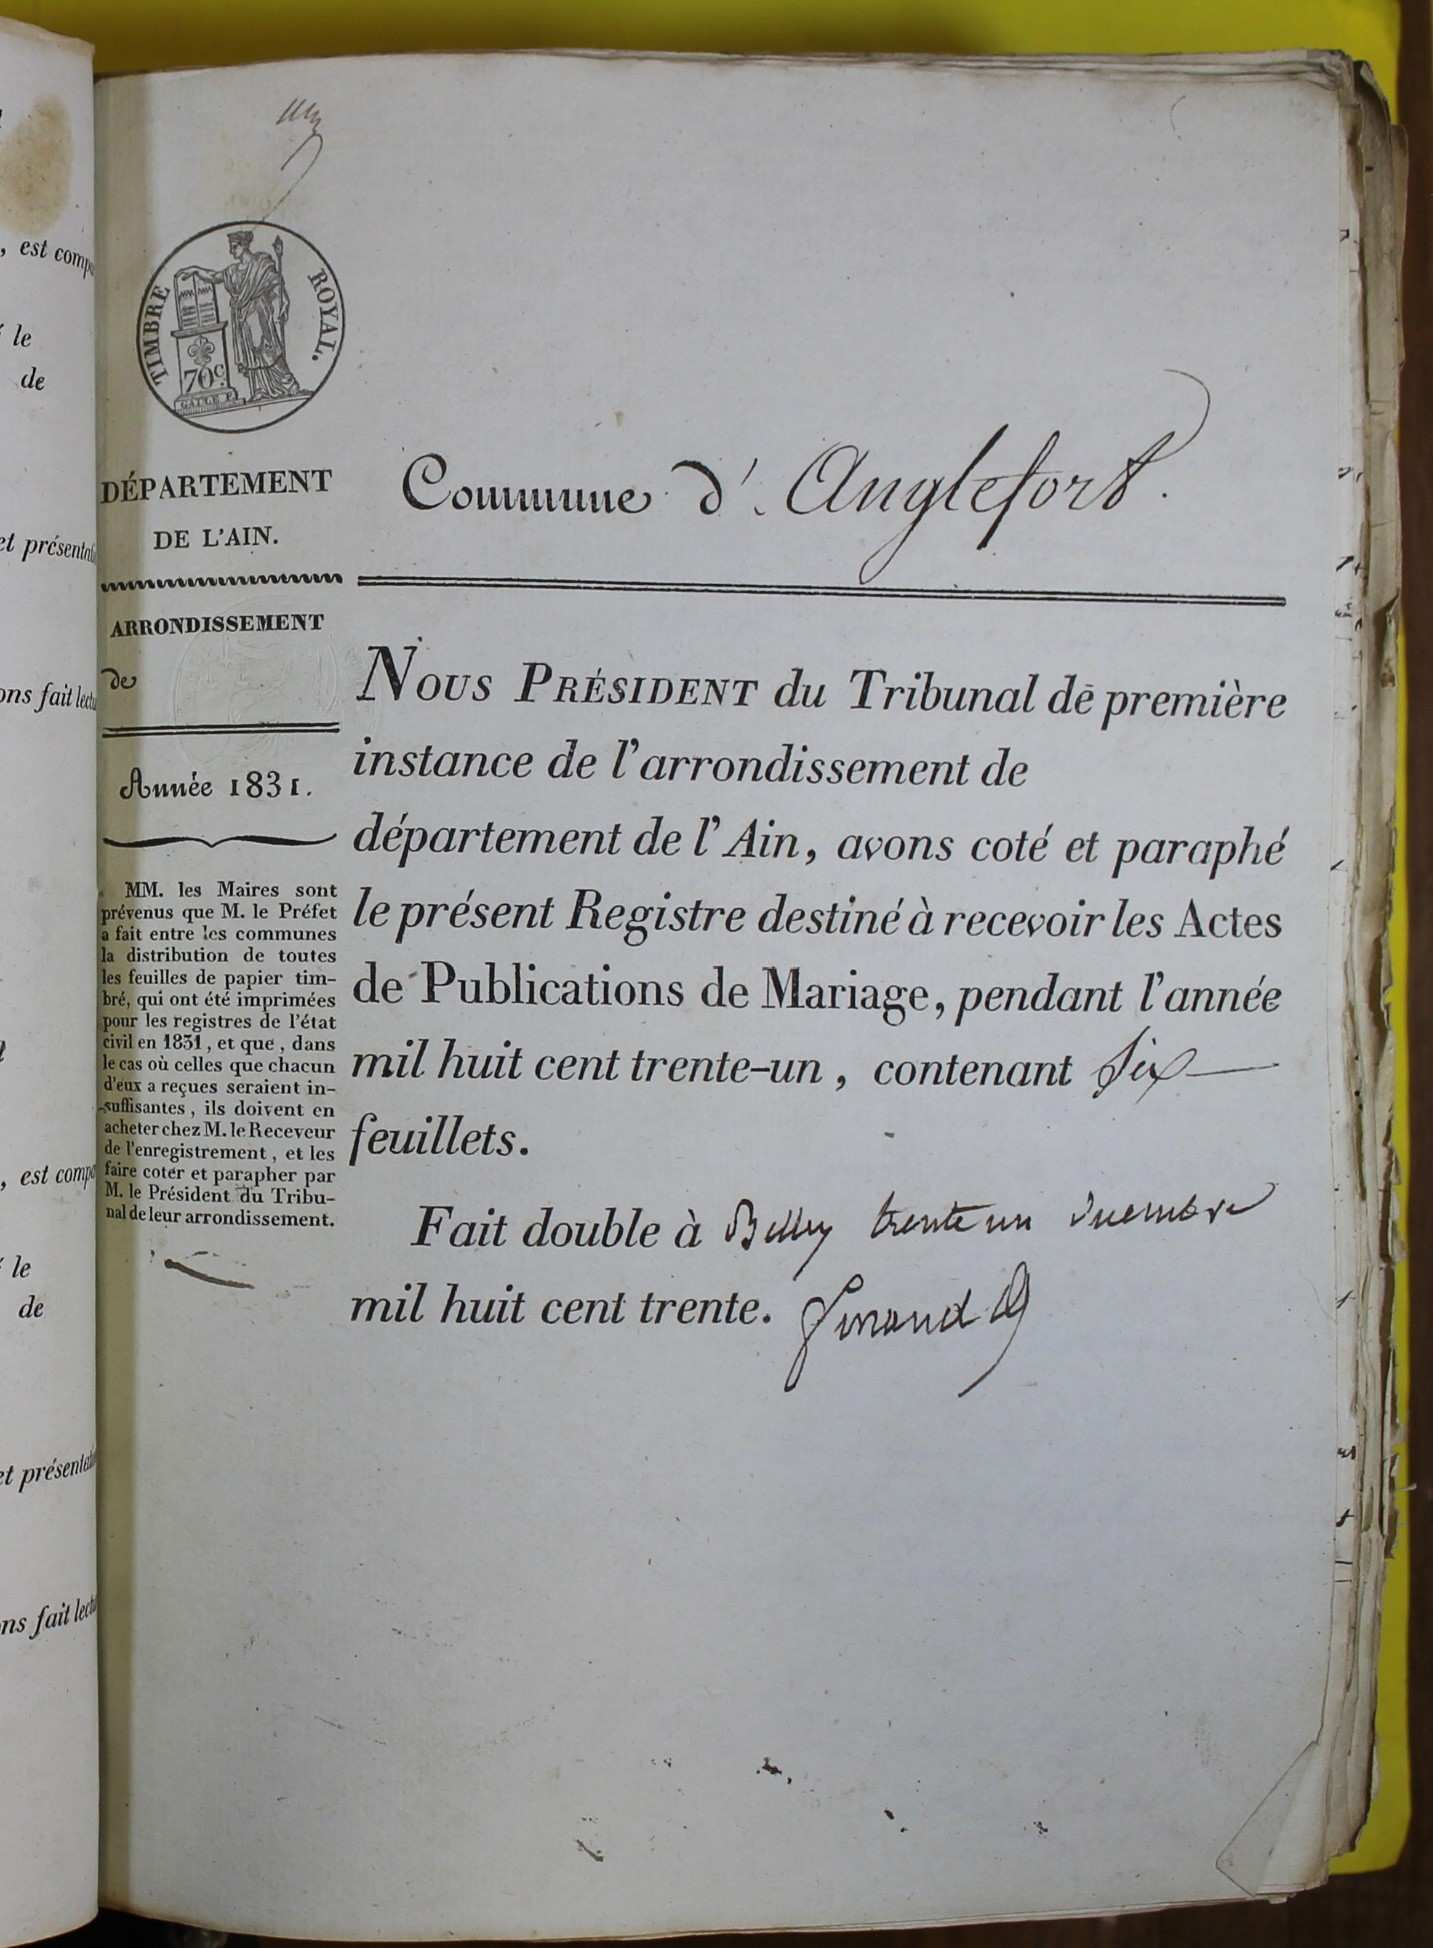 , est compa
le
de
et présentati
ons fait lectu
, est compa
le
de
et présentati
ons fait lectu
TIMBRE ROYAL.
70c.
GATTE F.
DÉPARTEMENT
DE L'AIN.
ARRONDISSEMENT
de
Année 1831.
MM. les Maires sont
prévenus que M. le Préfet
a fait entre les communes
la distribution de toutes
les feuilles de papier tim-
bré, qui ont été imprimées
pour les registres de l'état
civil en 1831, et que, dans
le cas où celles que chacun
d'eux a reçues seraient in-
suffisantes, ils doivent en
acheter chez M. le Receveur
de l'enregistrement, et les
faire coter et parapher par
M. le Président du Tribu-
nal de leur arrondissement.
Commune d' Anglefort.
NOUS PRÉSIDENT du Tribunal de première
instance de l'arrondissement de
département de l'Ain, avons coté et paraphé
le présent Registre destiné à recevoir les Actes
de Publications de Mariage, pendant l'année
mil huit cent trente-un, contenant Six
feuillets.
Fait double à Belley trente un decembre
mil huit cent trente.